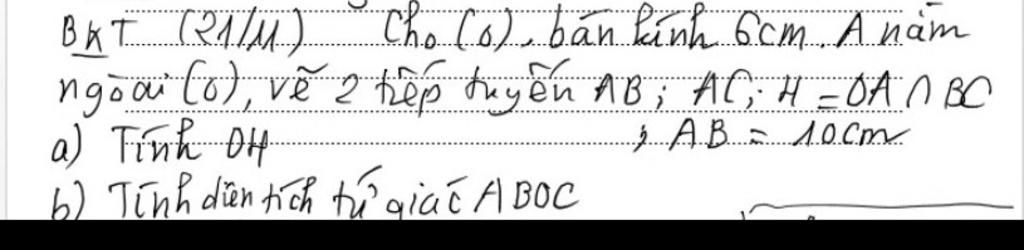 BKT (21/11) Cho (O), bán kính 6cm. A nằm
ngoài (O), vẽ 2 tiếp tuyến AB; AC; H = OA ∩ BC
a) Tính OH ; AB = 10cm
b) Tính diện tích tứ giác ABOC